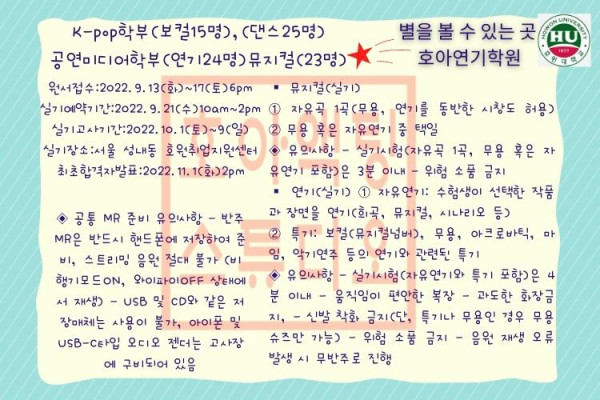 K-pop학부(보컬15명),(댄스25명)
공연미디어학부(연기24명)뮤지컬(23명)
별을 볼 수 있는 곳
호아연기학원
HOWON UNIVERSITY
HU
1977
호원대학교
원서접수:2022.9.13(화)~17(토)6pm
실기예약기간:2022.9.21(수)10am~2pm
실기고사기간:2022.10.1(토)~9(일)
실기장소:서울 성내동 호원취업지원센터
최초합격자발표:2022.11.1(화)2pm
◈ 공통 MR 준비 유의사항 - 반주
MR은 반드시 핸드폰에 저장하여 준
비, 스트리밍 음원 절대 불가 (비
행기모드ON, 와이파이OFF 상태에
서 재생) - USB 및 CD와 같은 저
장매체는 사용이 불가, 아이폰 및
USB-C타입 오디오 젠더는 고사장
에 구비되어 있음
▪ 뮤지컬(실기)
① 자유곡 1곡(무용, 연기를 동반한 시창도 허용)
② 무용 혹은 자유연기 중 택일
◈ 유의사항 - 실기시험(자유곡 1곡, 무용 혹은 자
유연기 포함)은 3분 이내 - 위험 소품 금지
▪ 연기(실기) ① 자유연기: 수험생이 선택한 작품
과 장면을 연기(희곡, 뮤지컬, 시나리오 등)
② 특기: 보컬(뮤지컬넘버), 무용, 아크로바틱, 마
임, 악기연주 등의 연기와 관련된 특기
◈ 유의사항 - 실기시험(자유연기와 특기 포함)은 4
분 이내 - 움직임이 편안한 복장 - 과도한 화장금
지, - 신발 착화 금지(단, 특기나 무용인 경우 무용
슈즈만 가능) - 위험 소품 금지 - 음원 재생 오류
발생 시 무반주로 진행
호아액팅
스튜디오